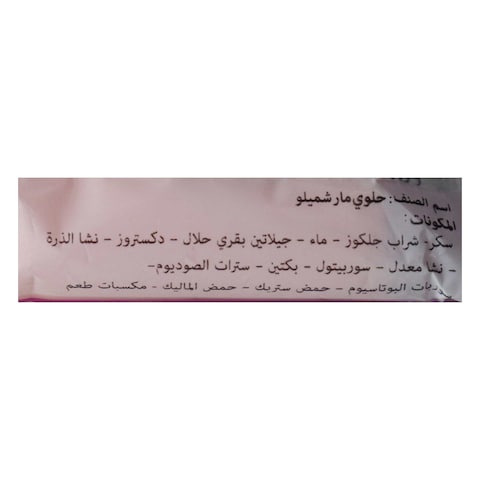 اسم الصنف: حلوي مارشميلو
المكونات:
سكر- شراب جلكوز - ماء - جيلاتين بقري حلال - دكستروز - نشا الذرة
- نشا معدل - سوربيتول - بكتين - سترات الصوديوم-
البوتاسيوم - حمض ستريك - حمض الماليك - مكسبات طعم